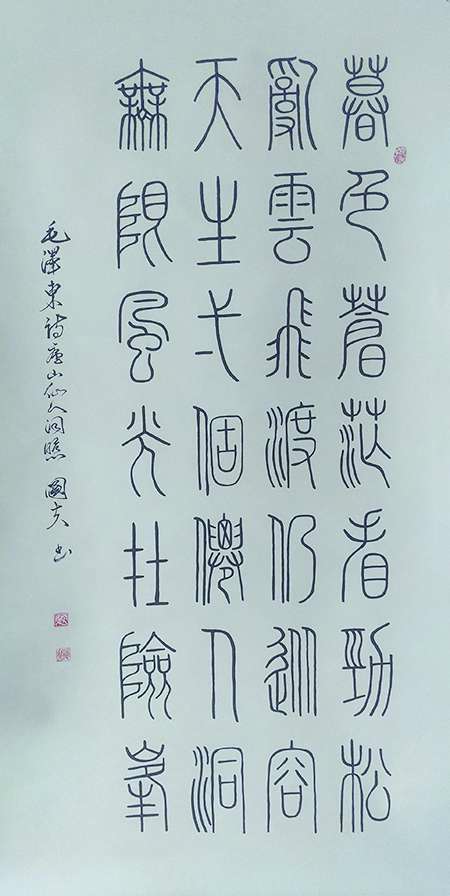 暮色蒼茫看勁松
亂雲飛渡仍從容
天生弌個僊人洞
無限風光在險峯
毛澤東詩廬山仙人洞照 國夫 書